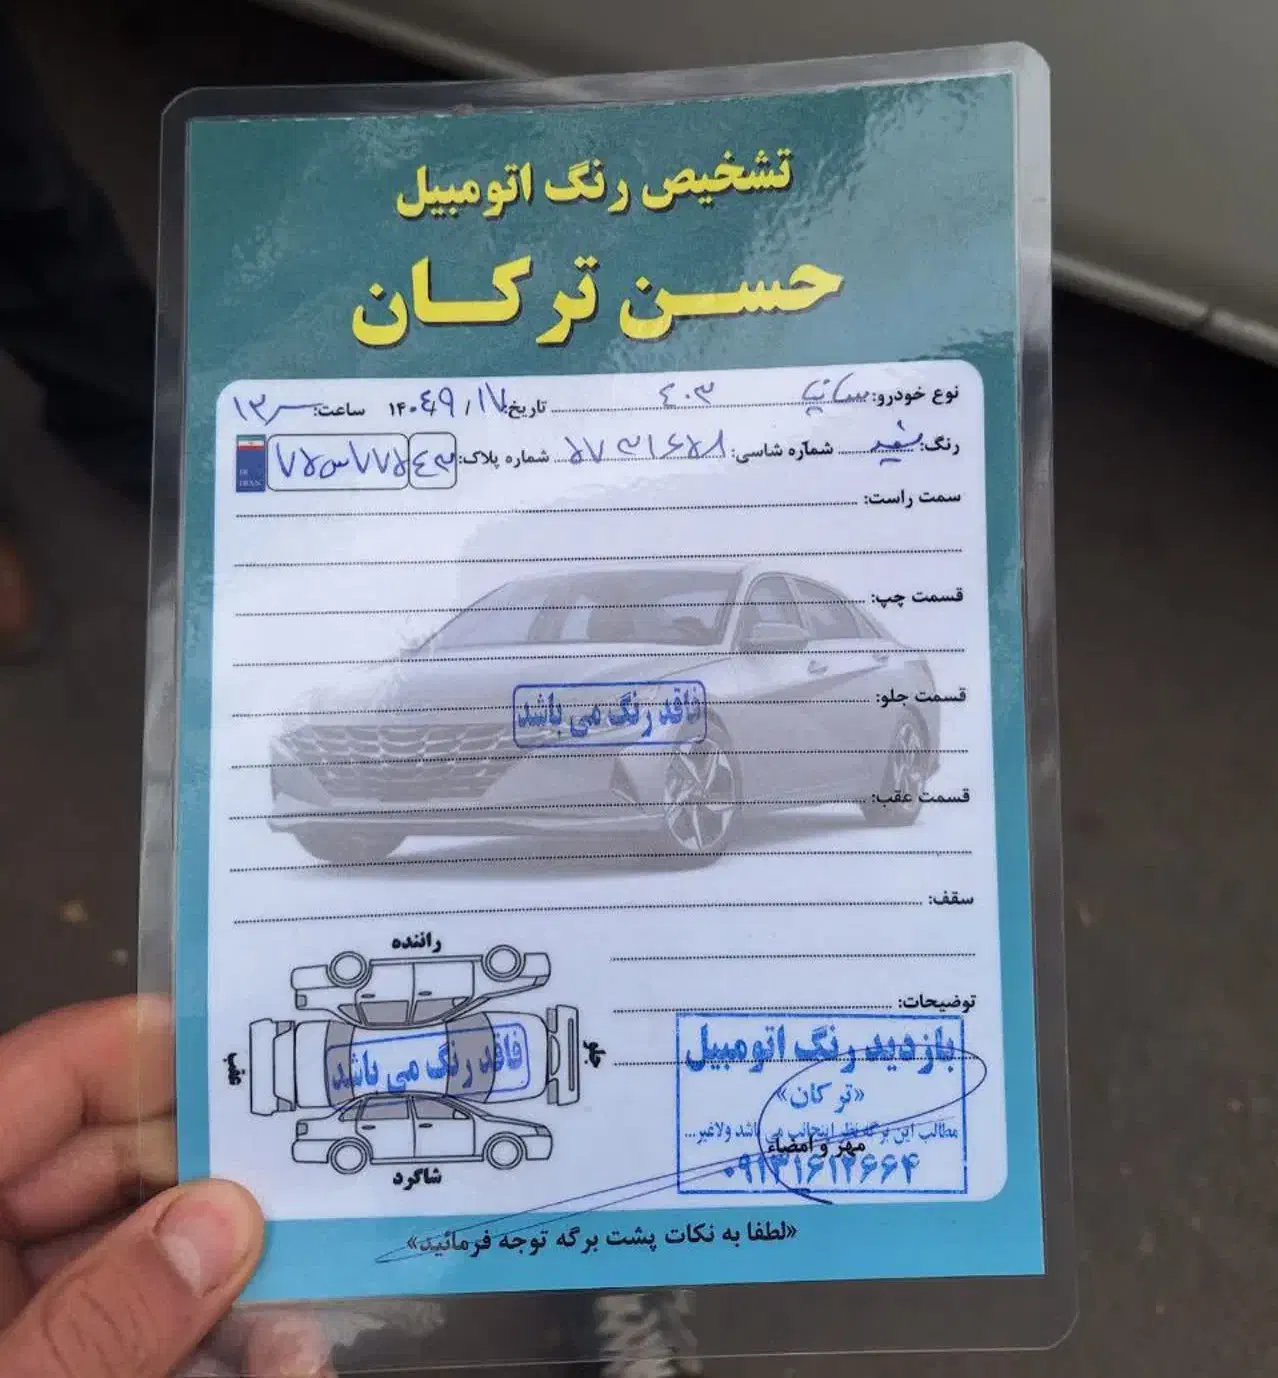 تشخیص رنگ اتومبیل
حسن ترکان
نوع خودرو: سایپا ۴۰۳ تاریخ: ۱۷ / ۹ / ۱۴۰۴ ساعت: ۱۳
رنگ: سفید شماره شاسی: شماره پلاک: ۴۳
سمت راست:
قسمت چپ:
قسمت جلو:
فاقد رنگ می باشد
قسمت عقب:
سقف:
توضیحات:
راننده
جلو
عقب
فاقد رنگ می باشد
شاگرد
بازدید رنگ اتومبیل
«ترکان»
مطالب این برگه نظر اینجانب می باشد ولاغیر...
مهر و امضاء
۰۹۱۳۱۶۱۲۶۶۴
«لطفا به نکات پشت برگه توجه فرمائید»